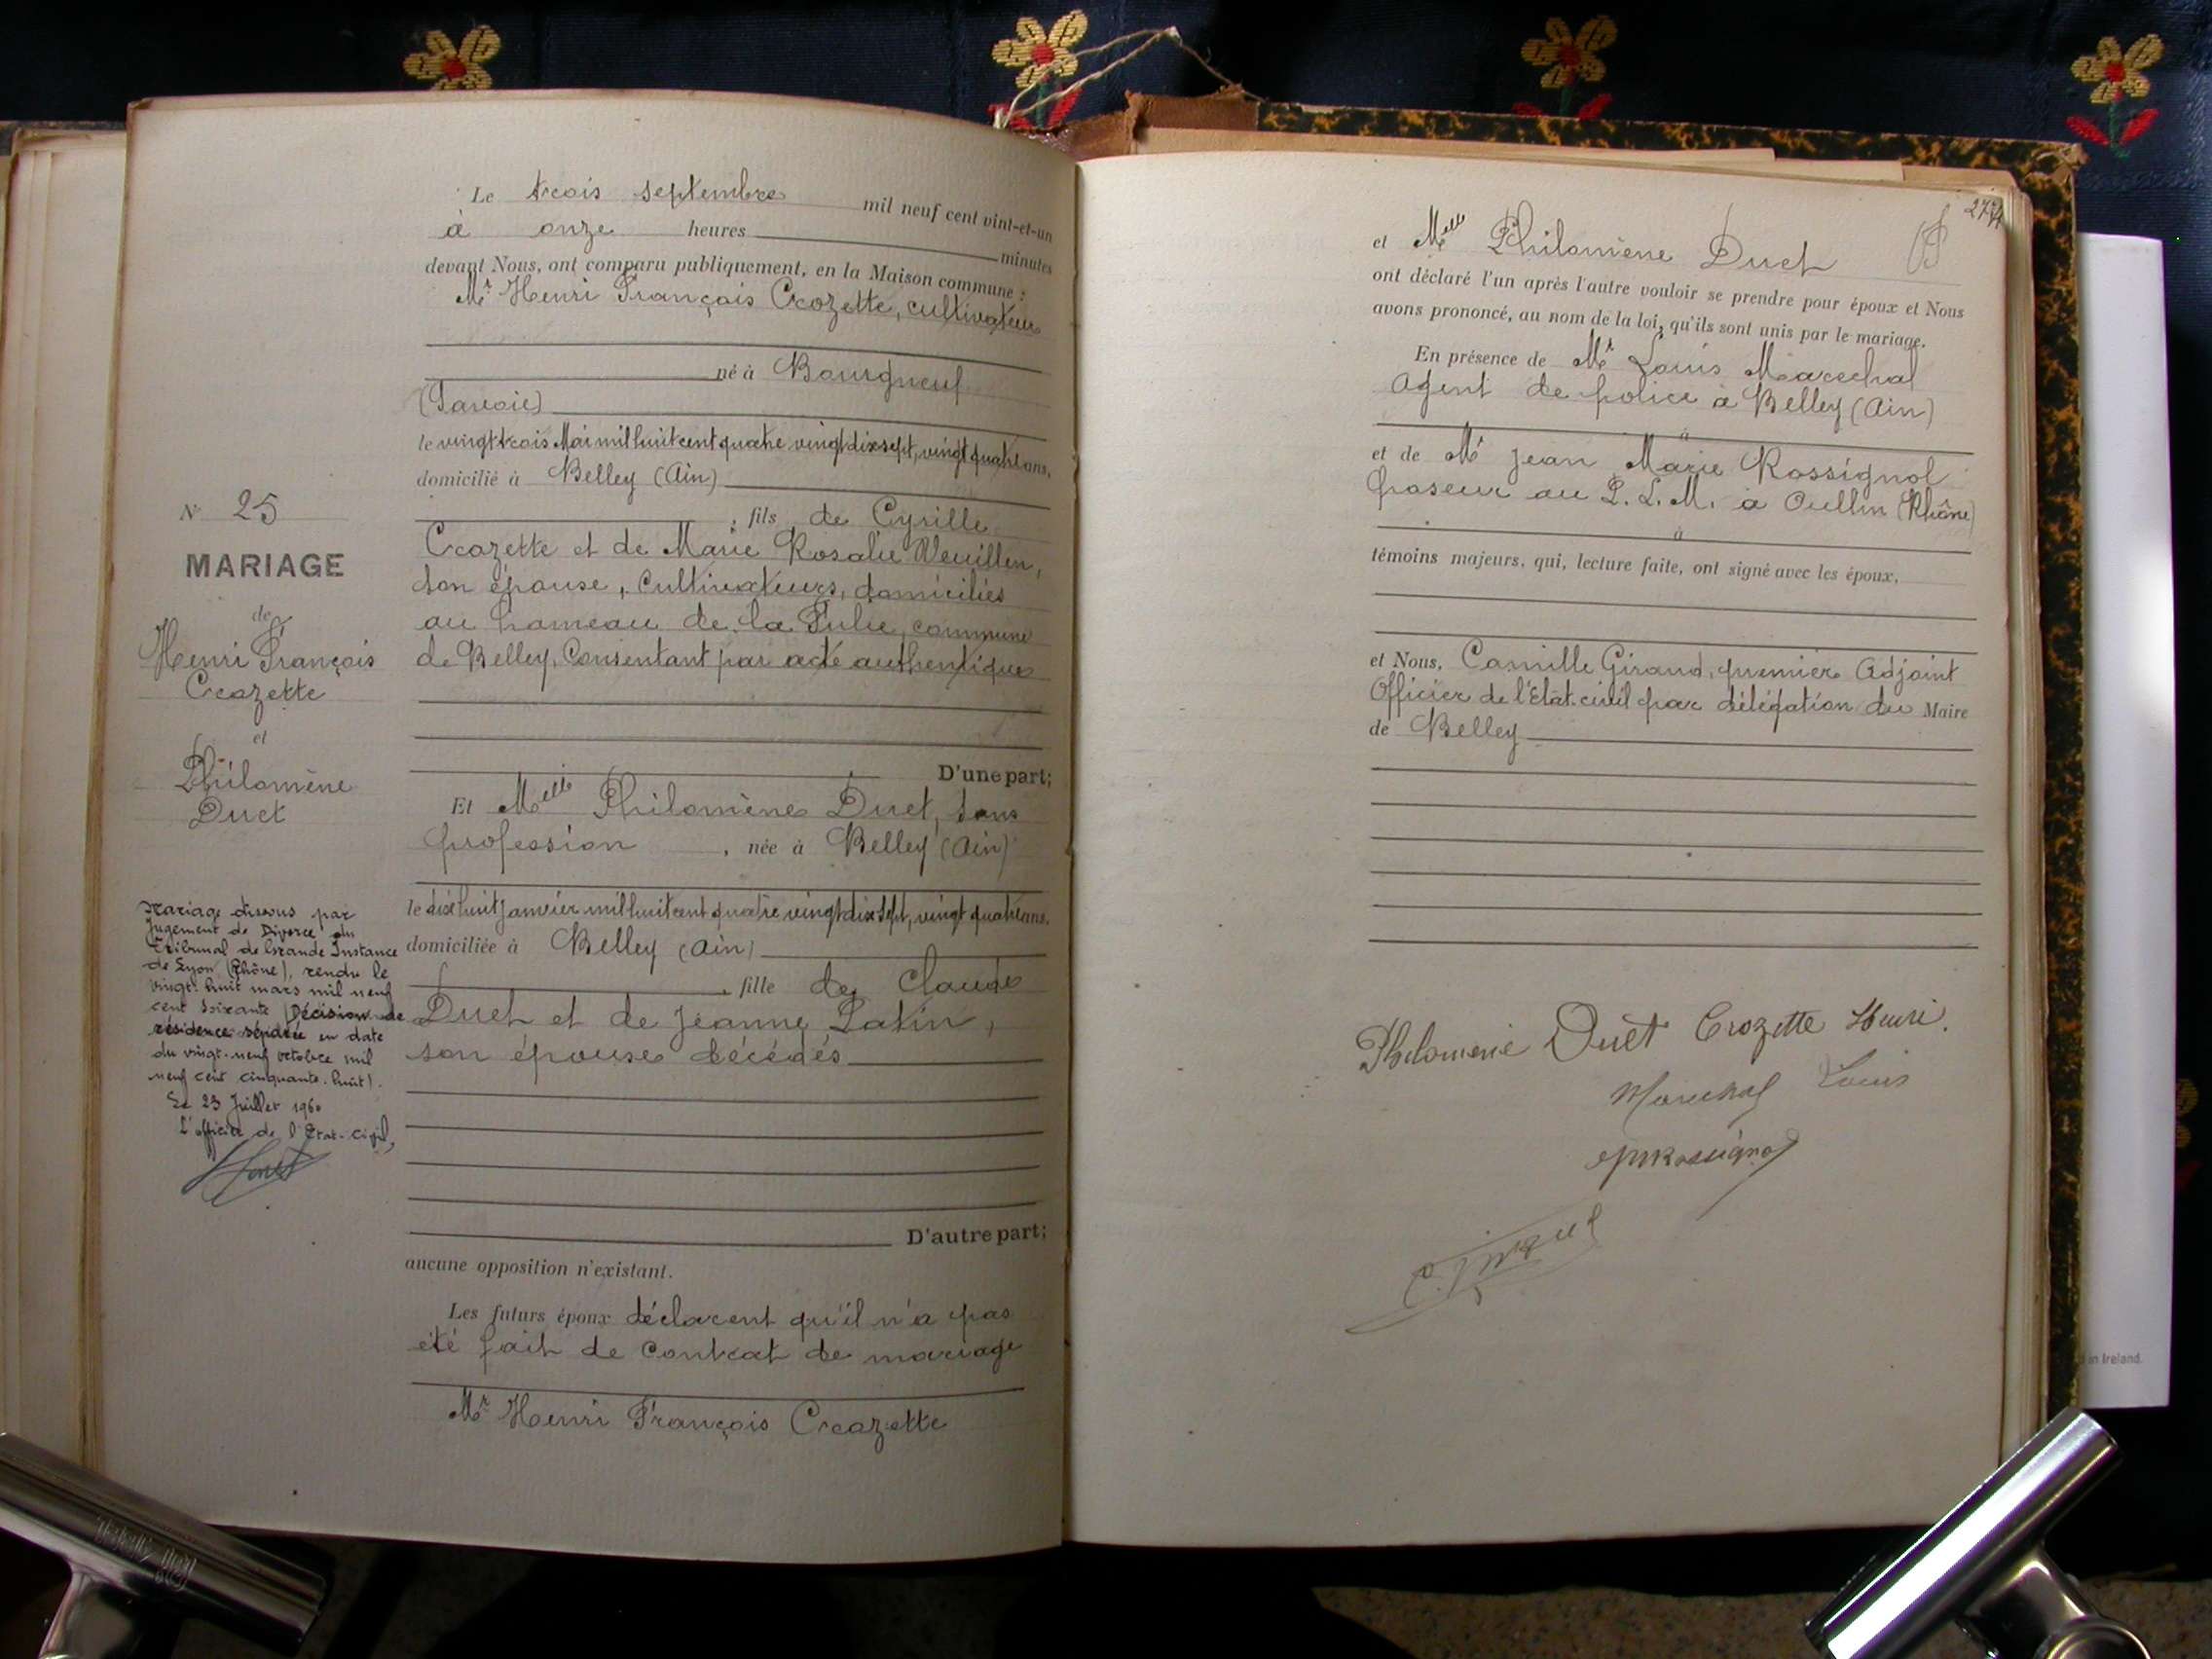 Le trois septembre mil neuf cent vint-et-un
à onze heures minutes
devant Nous, ont comparu publiquement, en la Maison commune :
Mr Henri François Crozette, cultivateur
né à Bourgneuf
(Savoie)
le vingt trois Mai mil huit cent quatre vingt dix sept, vingt quatre ans,
domicilié à Belley (Ain)
; fils de Cyrille
Crozette et de Marie Rosalie Veuillen,
son épouse, Cultivateurs, domiciliés
au hameau de la commune
de Belley, Consentant par acte authentique
D'une part;
Et Melle Philomène Duet, sans
profession, née à Belley (Ain)
le dix huit Janvier mil huit cent quatre vingt dix sept, vingt quatre ans.
domiciliée à Belley (Ain)
, fille de Claude
Duet et de Jeanne Patin,
son épouse décédés
D'autre part;
aucune opposition n'existant.
Les futurs époux déclarent qu'il n'a pas
été fait de contrat de mariage
Mr Henri François Crozette
N° 25
MARIAGE
de
Henri François
Crozette
et
Philomène
Duet
Mariage dissous par
Jugement de Divorce du
Tribunal de Grande Instance
de Lyon (Rhône), rendu le
vingt-huit mars mil neuf
cent soixante (Décision de
résidence séparée en date
du vingt-neuf octobre mil
neuf cent cinquante-huit).
Le 23 Juillet 1960
L'officier de l'Etat-Civil,
274
et Melle Philomène Duet
ont déclaré l'un après l'autre vouloir se prendre pour époux et Nous
avons prononcé, au nom de la loi, qu'ils sont unis par le mariage.
En présence de Mr Louis Marechal
Agent de police à Belley (Ain)
à
et de Mr Jean Marie Rossignol
poseur au P. L. M. à Oullin (Rhône)
à
témoins majeurs, qui, lecture faite, ont signé avec les époux,
et Nous, Camille Giraud, premier Adjoint
Officier de l'Etat-civil par délégation du Maire
de Belley
Philomene Duet Crozette Henri.
Marechal Louis
JM Rossignol
in Ireland.